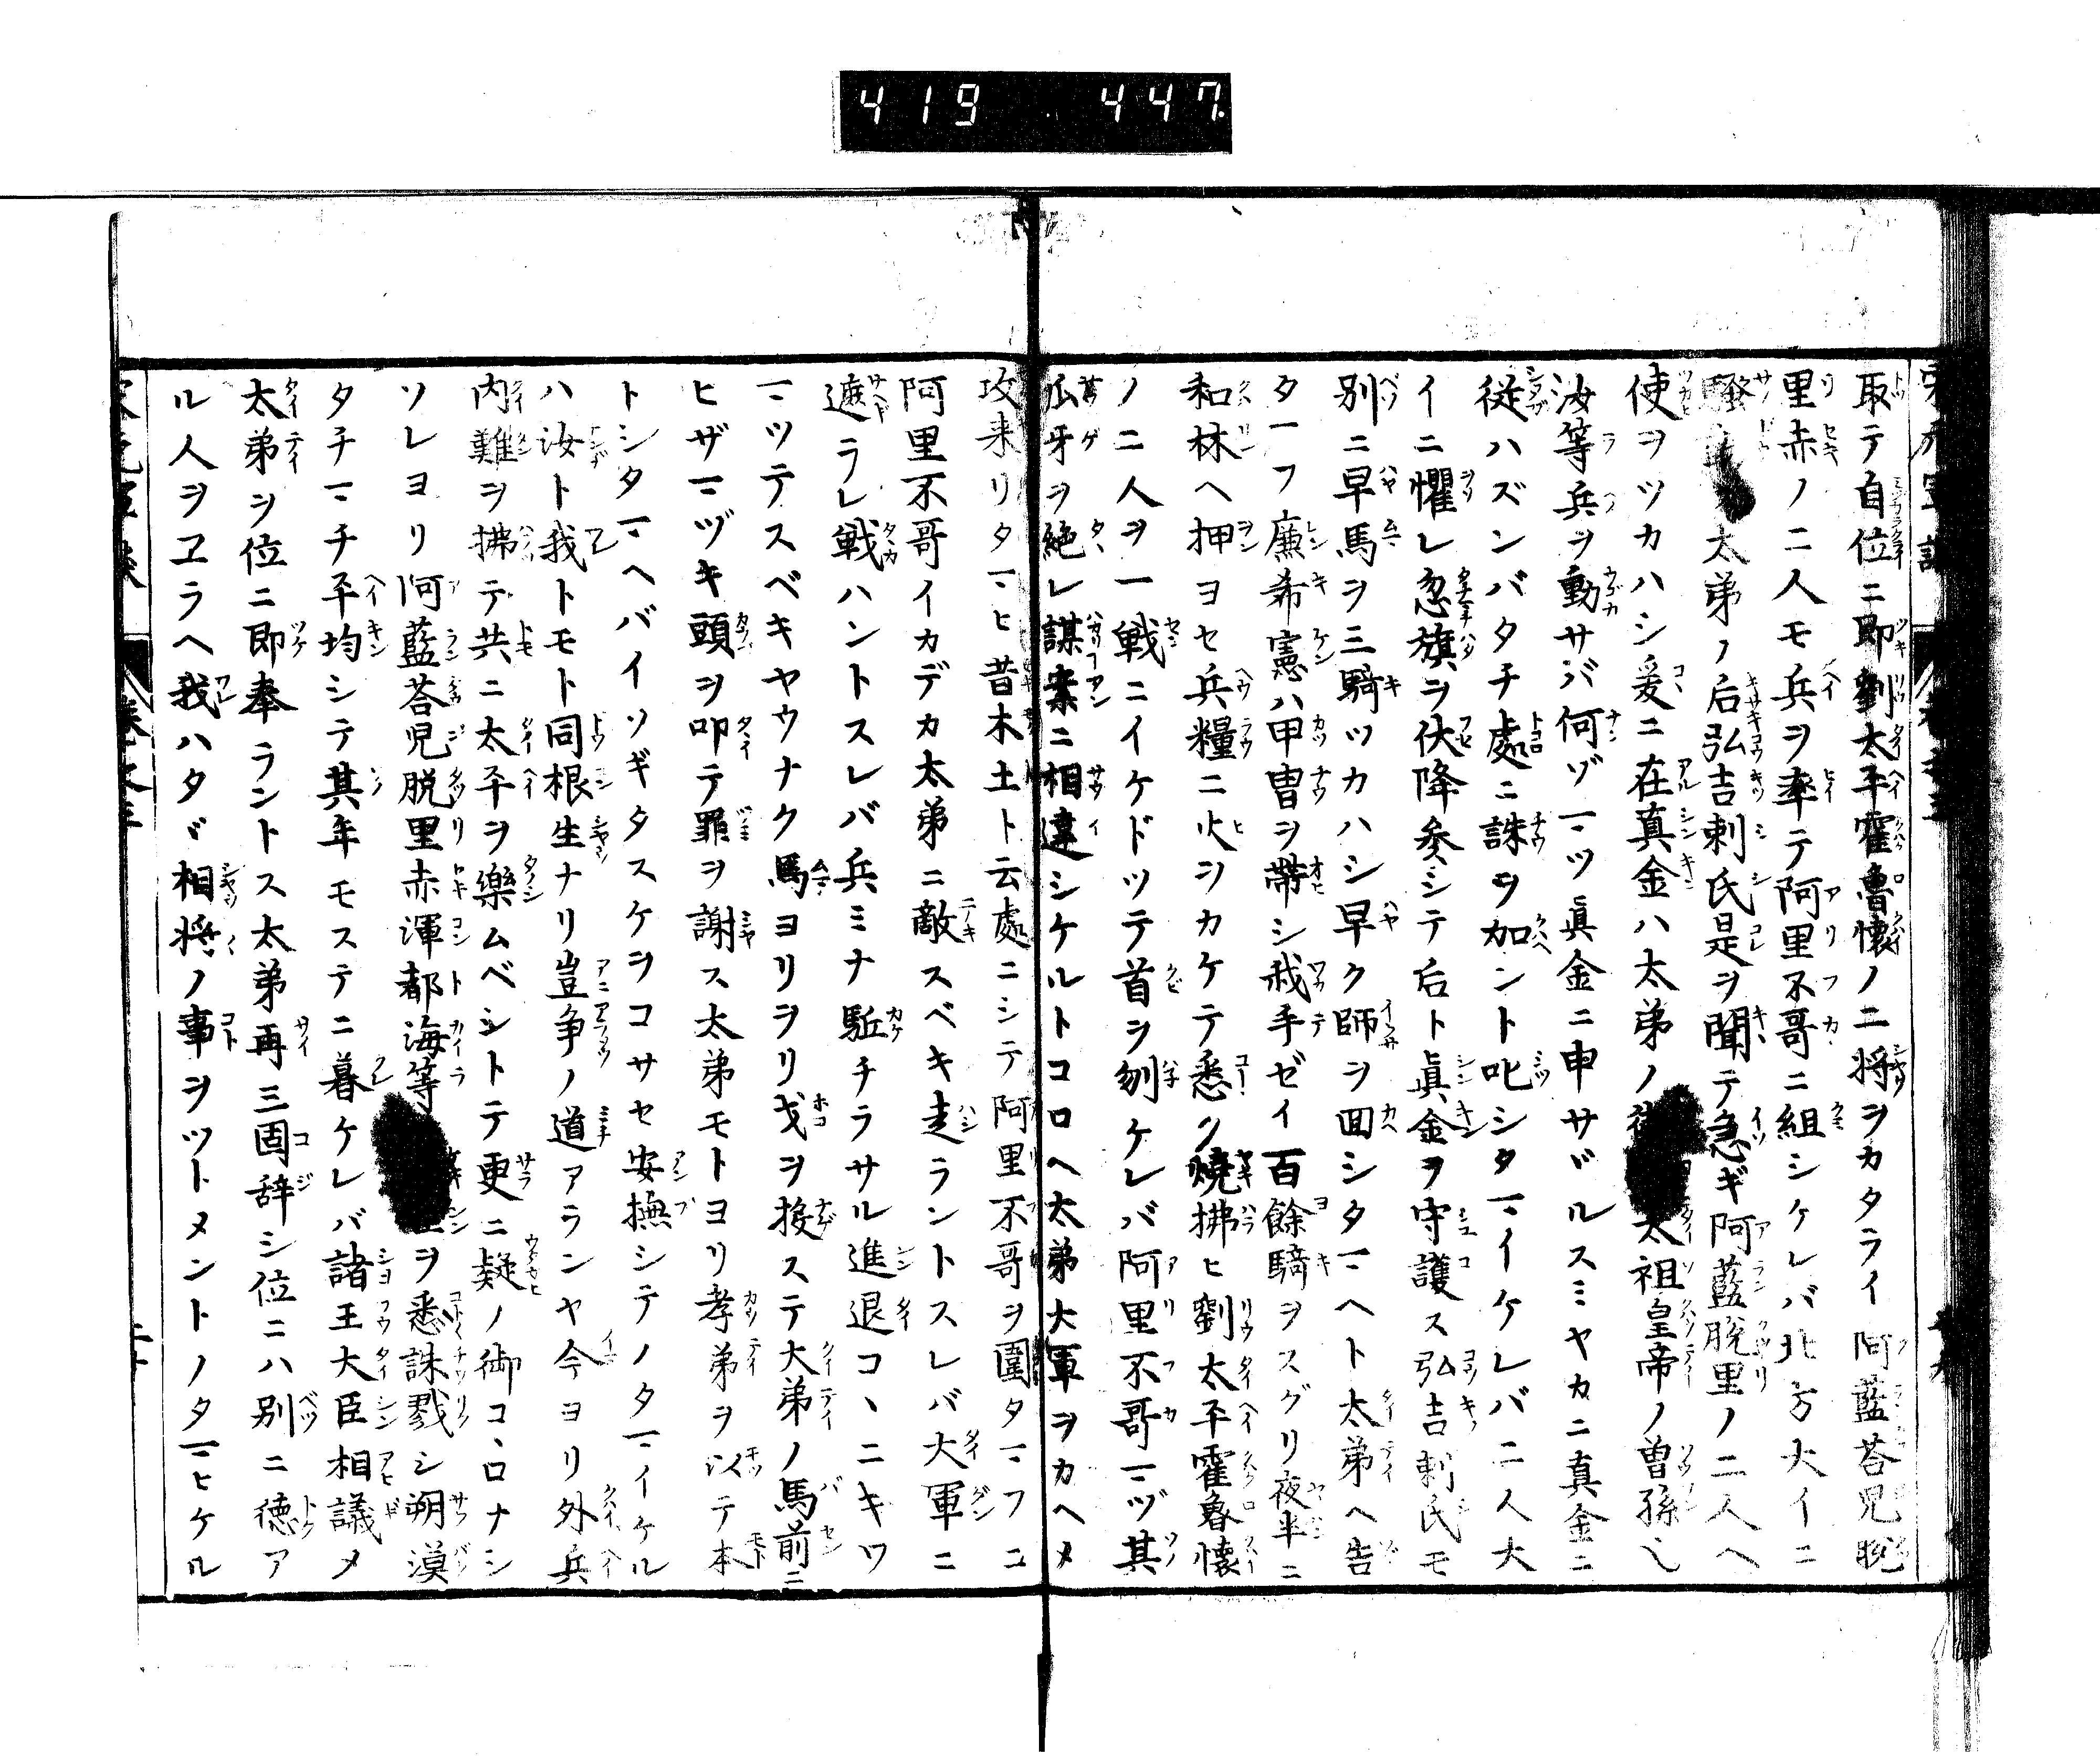 419 447.
取テ自位ニ即劉太平霍魯懷ノ二将ヲカタライ阿藍荅児脱
里赤ノ二人モ兵ヲ率テ阿里不哥ニ組シケレバ北方大イニ
騒 太弟ノ后弘吉剌氏是ヲ聞テ急ギ阿藍脱里ノ二人ヘ
使ヲツカハシ爰ニ在真金ハ太弟ノ 太祖皇帝ノ曽孫也
汝等兵ヲ動サバ何ゾマヅ眞金ニ申サヾルスミヤカニ真金ニ
従ハズンバタチ處ニ誅ヲ加ント叱シタマイケレバ二人大
イニ懼レ忽旗ヲ伏降参シテ后ト眞金ヲ守護ス弘吉剌氏モ
別ニ早馬ヲ三騎ツカハシ早ク師ヲ回シタマヘト太弟ヘ告
タマフ廉希憲ハ甲冑ヲ帯シ我手ゼイ百餘騎ヲスグリ夜半ニ
和林ヘ押ヨセ兵糧ニ火ヲカケテ悉ク燒拂ヒ劉太平霍魯懐
ノ二人ヲ一戦ニイケドツテ首ヲ刎ケレバ阿里不哥マヅ其
瓜牙ヲ絶レ謀案ニ相違シケルトコロヘ太弟大軍ヲカヘメ
攻来リタマヒ昔木土ト云處ニシテ阿里不哥ヲ圍タマフニ
阿里不哥イカデカ太弟ニ敵スベキ走ラントスレバ大軍ニ
遮ラレ戦ハントスレバ兵ミナ駈チラサル進退コヽニキワ
マツテスベキヤウナク馬ヨリヲリ戈ヲ捘ステ大弟ノ馬前ニ
ヒザマヅキ頭ヲ叩テ罪ヲ謝ス太弟モトヨリ孝弟ヲ以テ本
トシタマヘバイソギタスケヲコサセ安撫シテノタマイケル
ハ汝ト我トモト同根生ナリ豈争ノ道アランヤ今ヨリ外兵
内難ヲ拂テ共ニ太平ヲ樂ムベシトテ更ニ疑ノ御コヽロナシ
ソレヨリ阿藍荅児脱里赤渾都海等 ヲ悉誅戮シ朔漠
タチマチ平均シテ其年モステニ暮ケレバ諸王大臣相議メ
太弟ヲ位ニ即奉ラントス太弟再三固辞シ位ニハ別ニ徳ア
ル人ヲヱラヘ我ハタヾ相将ノ事ヲツトメントノタマヒケル